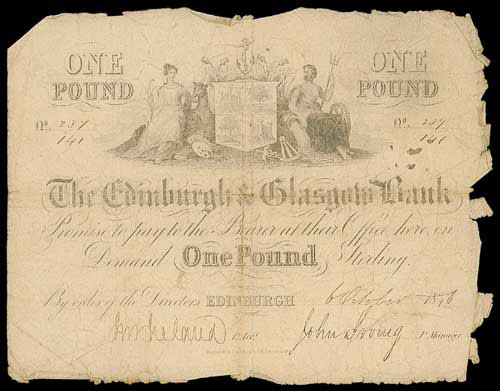 ONE POUND
ONE POUND
No. 237/141
No. 237/141
The Edinburgh & Glasgow Bank
Promise to pay to the Bearer at their Office here, on
Demand One Pound Sterling.
By order of the Directors EDINBURGH 6 October 1846
John Irving